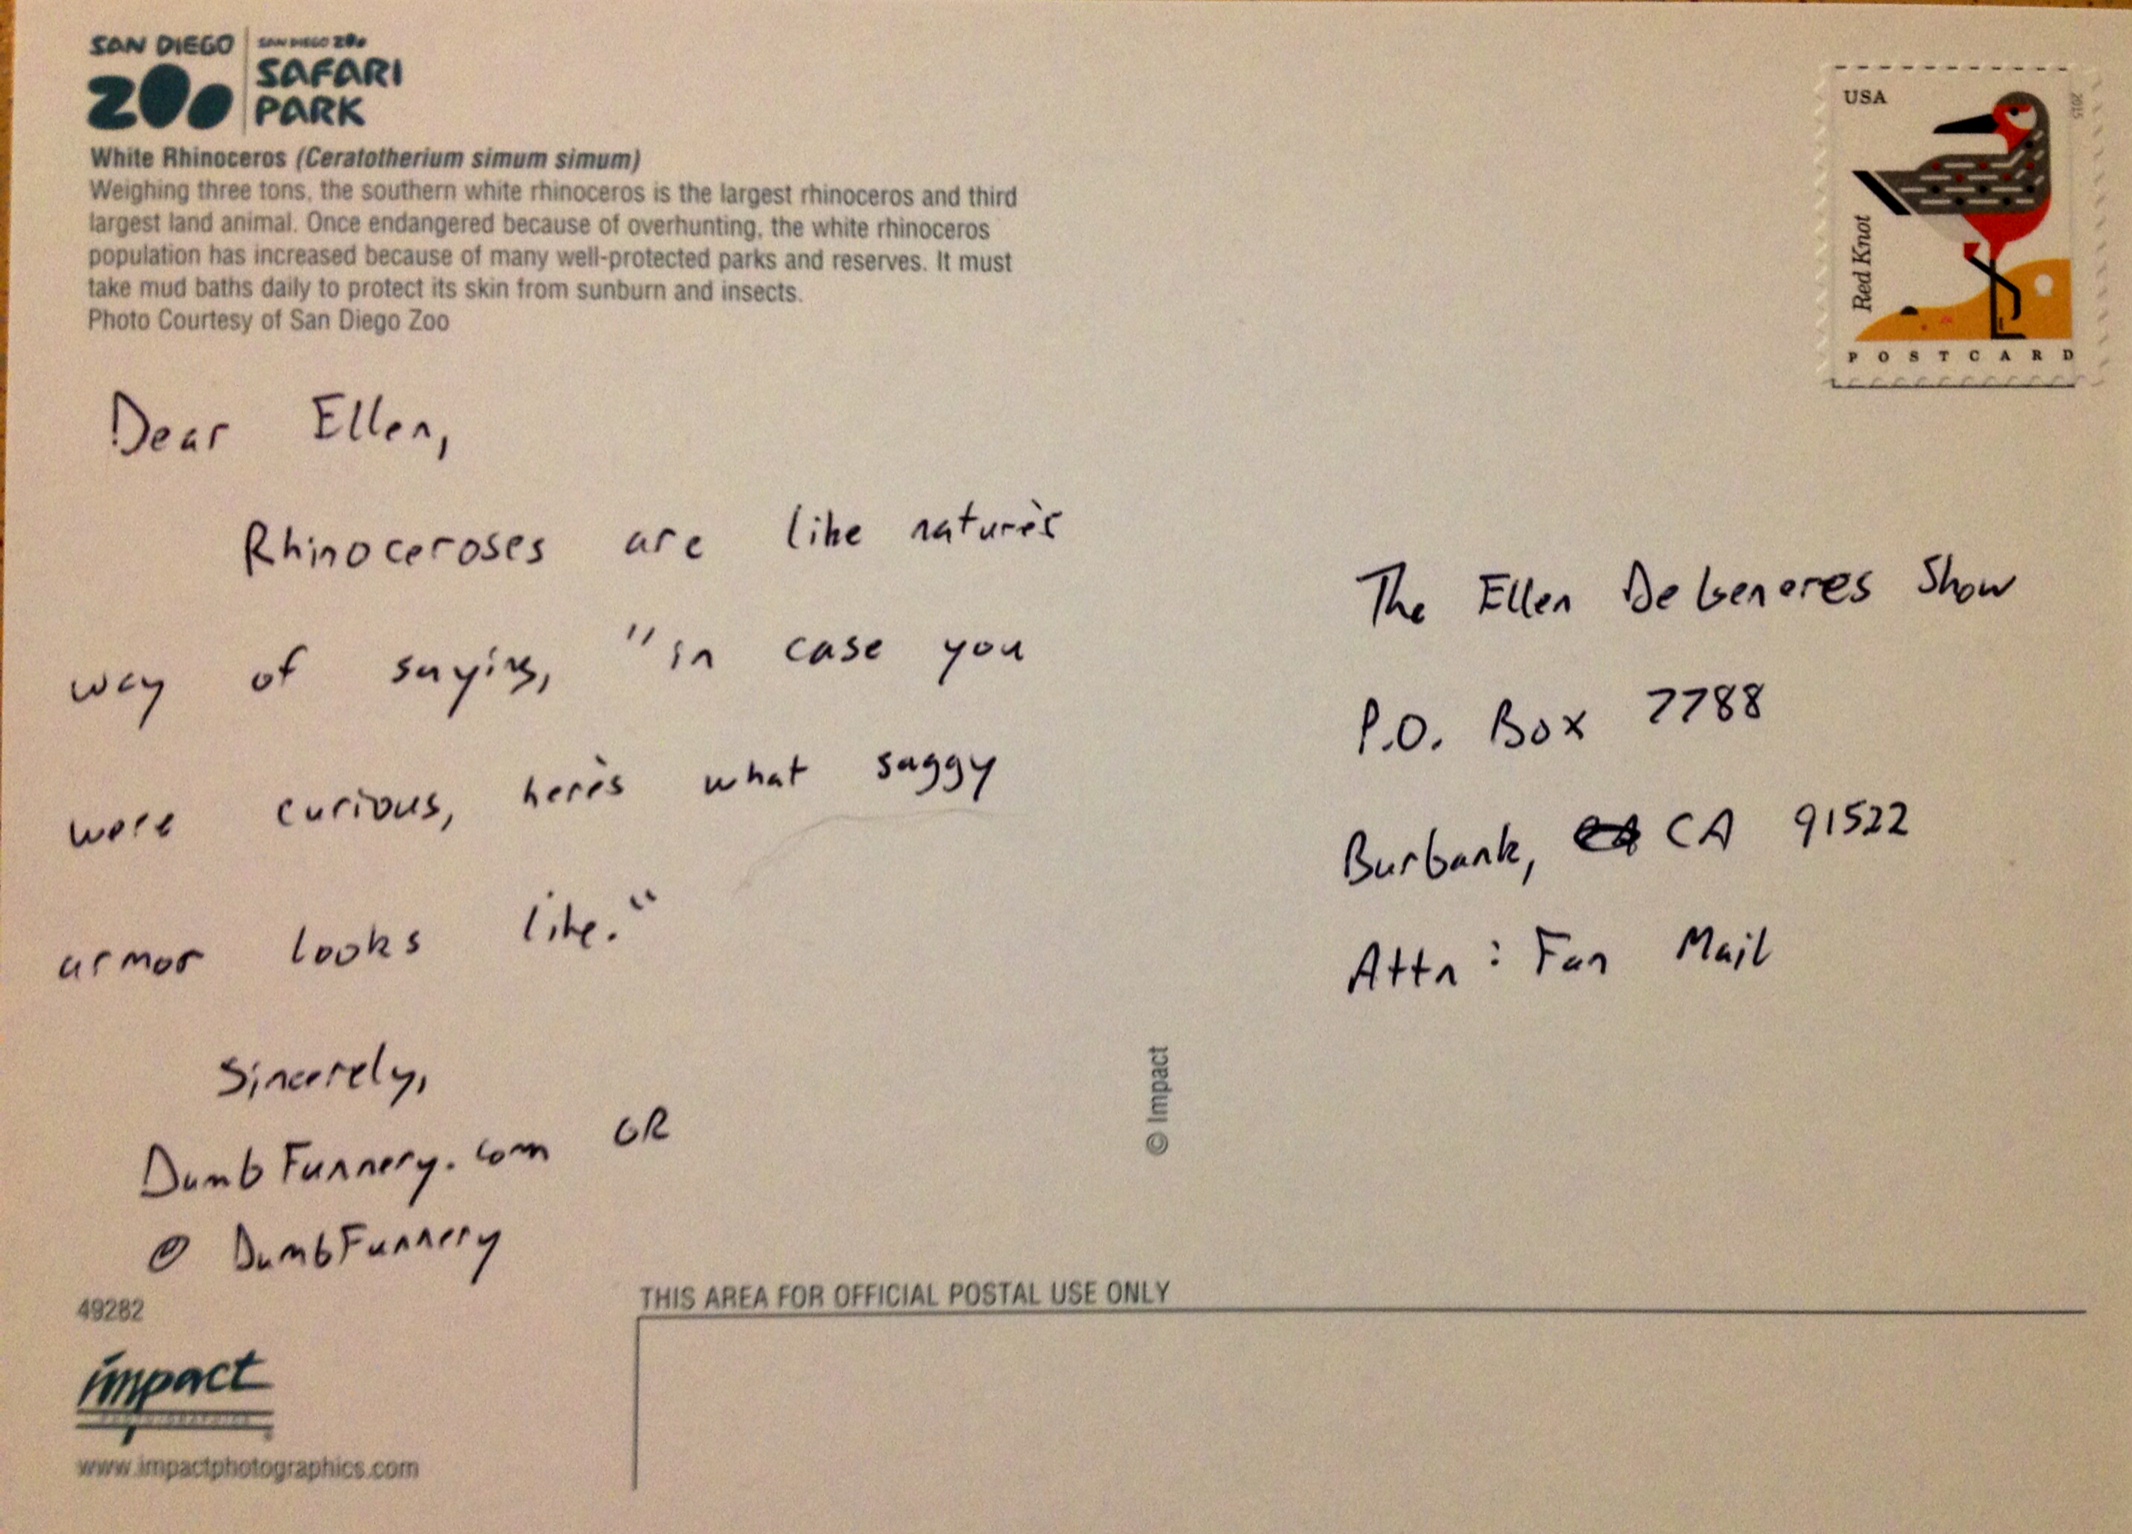 SAN DIEGO ZOO
SAN DIEGO ZOO
SAFARI
PARK
White Rhinoceros (Ceratotherium simum simum)
Weighing three tons, the southern white rhinoceros is the largest rhinoceros and third
largest land animal. Once endangered because of overhunting, the white rhinoceros
population has increased because of many well-protected parks and reserves. It must
take mud baths daily to protect its skin from sunburn and insects.
Photo Courtesy of San Diego Zoo
USA
2015
Red Knot
POSTCARD
Dear Ellen,
Rhinoceroses are like nature's
way of saying, "in case you
were curious, here's what saggy
armor looks like."
Sincerely,
DumbFunnery.com OR
@ DumbFunnery
The Ellen DeGeneres Show
P.O. Box 7788
Burbank, CA 91522
Attn: Fan Mail
© Impact
49282
impact
PHOTOGRAPHICS
www.impactphotographics.com
THIS AREA FOR OFFICIAL POSTAL USE ONLY